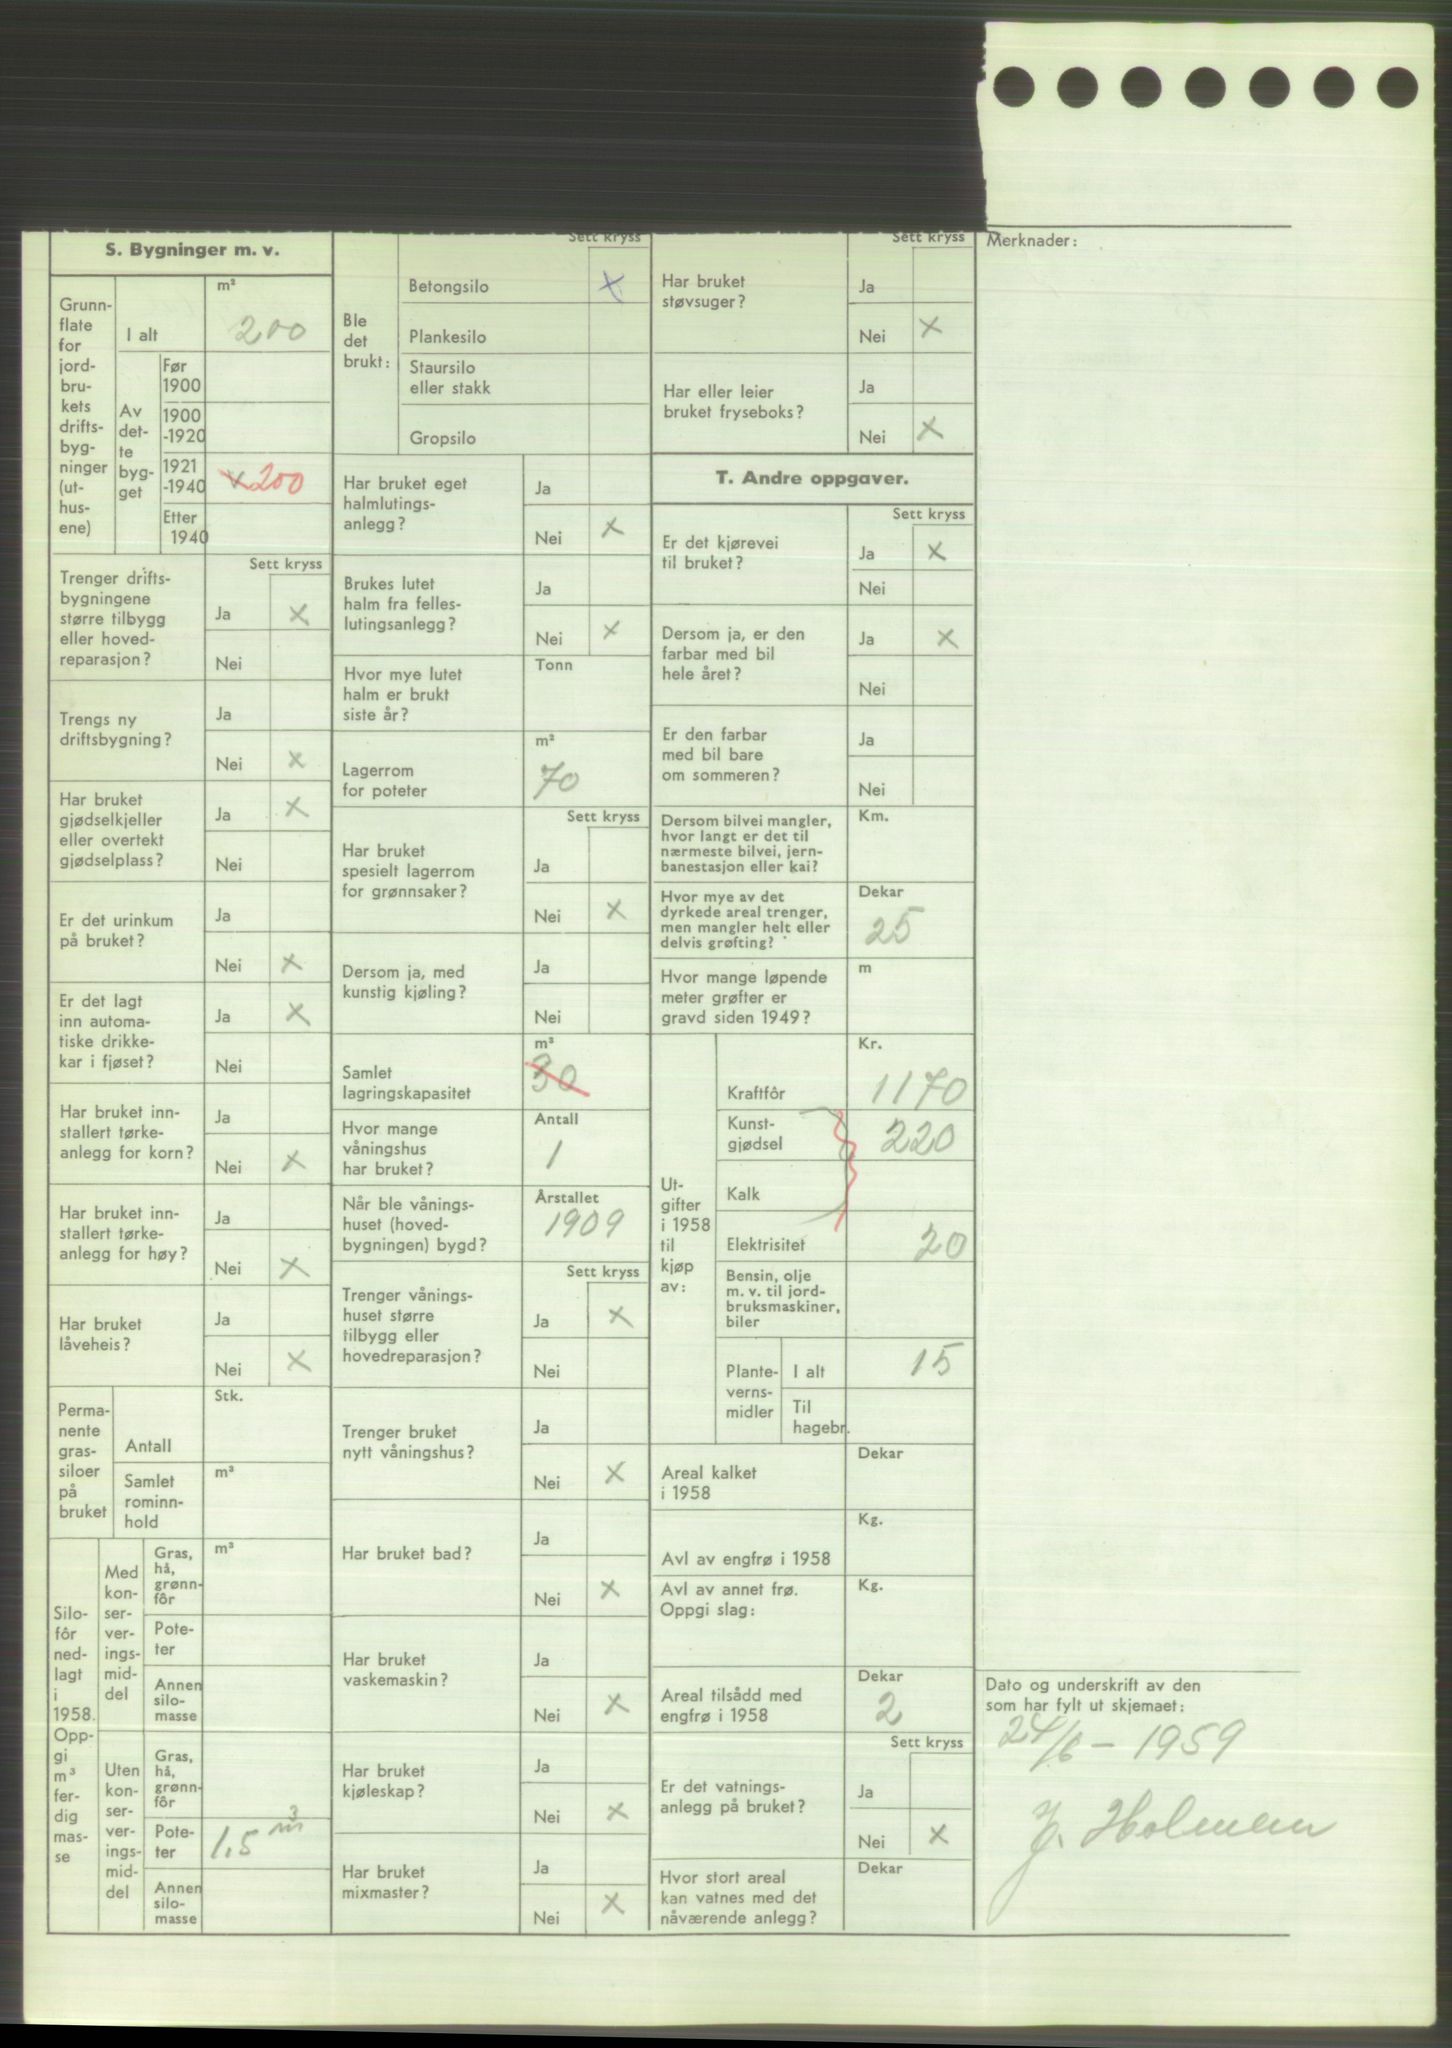 S. Bygninger m. v.
Grunn-
flate
for
jord-
bru-
kets
drifts-
byg-
ninger
(ut-
hus-
ene)
I alt
m²
200
Av
det-
te
byg-
get
Før
1900
1900
-1920
1921
-1940
x 200
Etter
1940
Sett kryss
Trenger drifts-
bygningene
større tilbygg
eller hoved-
reparasjon?
Ja x
Nei
Trengs ny
driftsbygning?
Ja
Nei x
Har bruket
gjødselkjeller
eller overtekt
gjødselplass?
Ja x
Nei
Er det urinkum
på bruket?
Ja
Nei x
Er det lagt
inn automa-
tiske drikke-
kar i fjøset?
Ja x
Nei
Har bruket inn-
stallert tørke-
anlegg for korn?
Ja
Nei x
Har bruket inn-
stallert tørke-
anlegg for høy?
Ja
Nei x
Har bruket
låveheis?
Ja
Nei x
Perma-
nente
gras-
siloer
på
bruket
Stk.
Antall
m³
Samlet
rominn-
hold
Silo-
fôr
ned-
lagt
i
1958.
Opp-
gi
m³
fer-
dig
mas-
se
Med
kon-
ser-
ver-
ings-
mid-
del
Gras,
hå,
grønn-
fôr
m³
Pote-
ter
Annen
silo-
masse
Uten
kon-
ser-
ver-
ings-
mid-
del
Gras,
hå,
grønn-
fôr
Pote-
ter
1,5 m³
Annen
silo-
masse
Ble
det
brukt:
Sett kryss
Betongsilo x
Plankesilo
Staursilo
eller stakk
Gropsilo
Har bruket eget
halmlutings-
anlegg?
Ja
Nei x
Brukes lutet
halm fra felles-
lutingsanlegg?
Ja
Nei x
Hvor mye lutet
halm er brukt
siste år?
Tonn
Lagerrom
for poteter
m³
70
Sett kryss
Har bruket
spesielt lagerrom
for grønnsaker?
Ja
Nei x
Dersom ja, med
kunstig kjøling?
Ja
Nei
Samlet
lagringskapasitet
m³
30
Hvor mange
våningshus
har bruket?
Antall
1
Når ble vånings-
huset (hoved-
bygningen) bygd?
Årstallet
1909
Sett kryss
Trenger vånings-
huset større
tilbygg eller
hovedreparasjon?
Ja x
Nei
Trenger bruket
nytt våningshus?
Ja
Nei x
Har bruket bad?
Ja
Nei x
Har bruket
vaskemaskin?
Ja
Nei x
Har bruket
kjøleskap?
Ja
Nei x
Har bruket
mixmaster?
Ja
Nei x
Sett kryss
Har bruket
støvsuger?
Ja
Nei x
Har eller leier
bruket fryseboks?
Ja
Nei x
T. Andre oppgaver.
Sett kryss
Er det kjørevei
til bruket?
Ja x
Nei
Dersom ja, er den
farbar med bil
hele året?
Ja x
Nei
Er den farbar
med bil bare
om sommeren?
Ja
Nei
Dersom bilvei mangler,
hvor langt er det til
nærmeste bilvei, jern-
banestasjon eller kai?
Km.
Hvor mye av det
dyrkede areal trenger,
men mangler helt eller
delvis grøfting?
Dekar
25
Hvor mange løpende
meter grøfter er
gravd siden 1949?
m
Ut-
gifter
i 1958
til
kjøp
av:
Kr.
Kraftfôr 1170
Kunst-
gjødsel 220
Kalk
Elektrisitet 20
Bensin, olje
m. v. til jord-
bruksmaskiner,
biler
Plante-
verns-
midler
I alt 15
Til
hagebr.
Areal kalket
i 1958
Dekar
Avl av engfrø i 1958
Kg.
Avl av annet frø.
Oppgi slag:
Kg.
Areal tilsådd med
engfrø i 1958
Dekar
2
Sett kryss
Er det vatnings-
anlegg på bruket?
Ja
Nei x
Hvor stort areal
kan vatnes med det
nåværende anlegg?
Dekar
Merknader:
Dato og underskrift av den
som har fylt ut skjemaet:
24/6 - 1959
J. Holmen